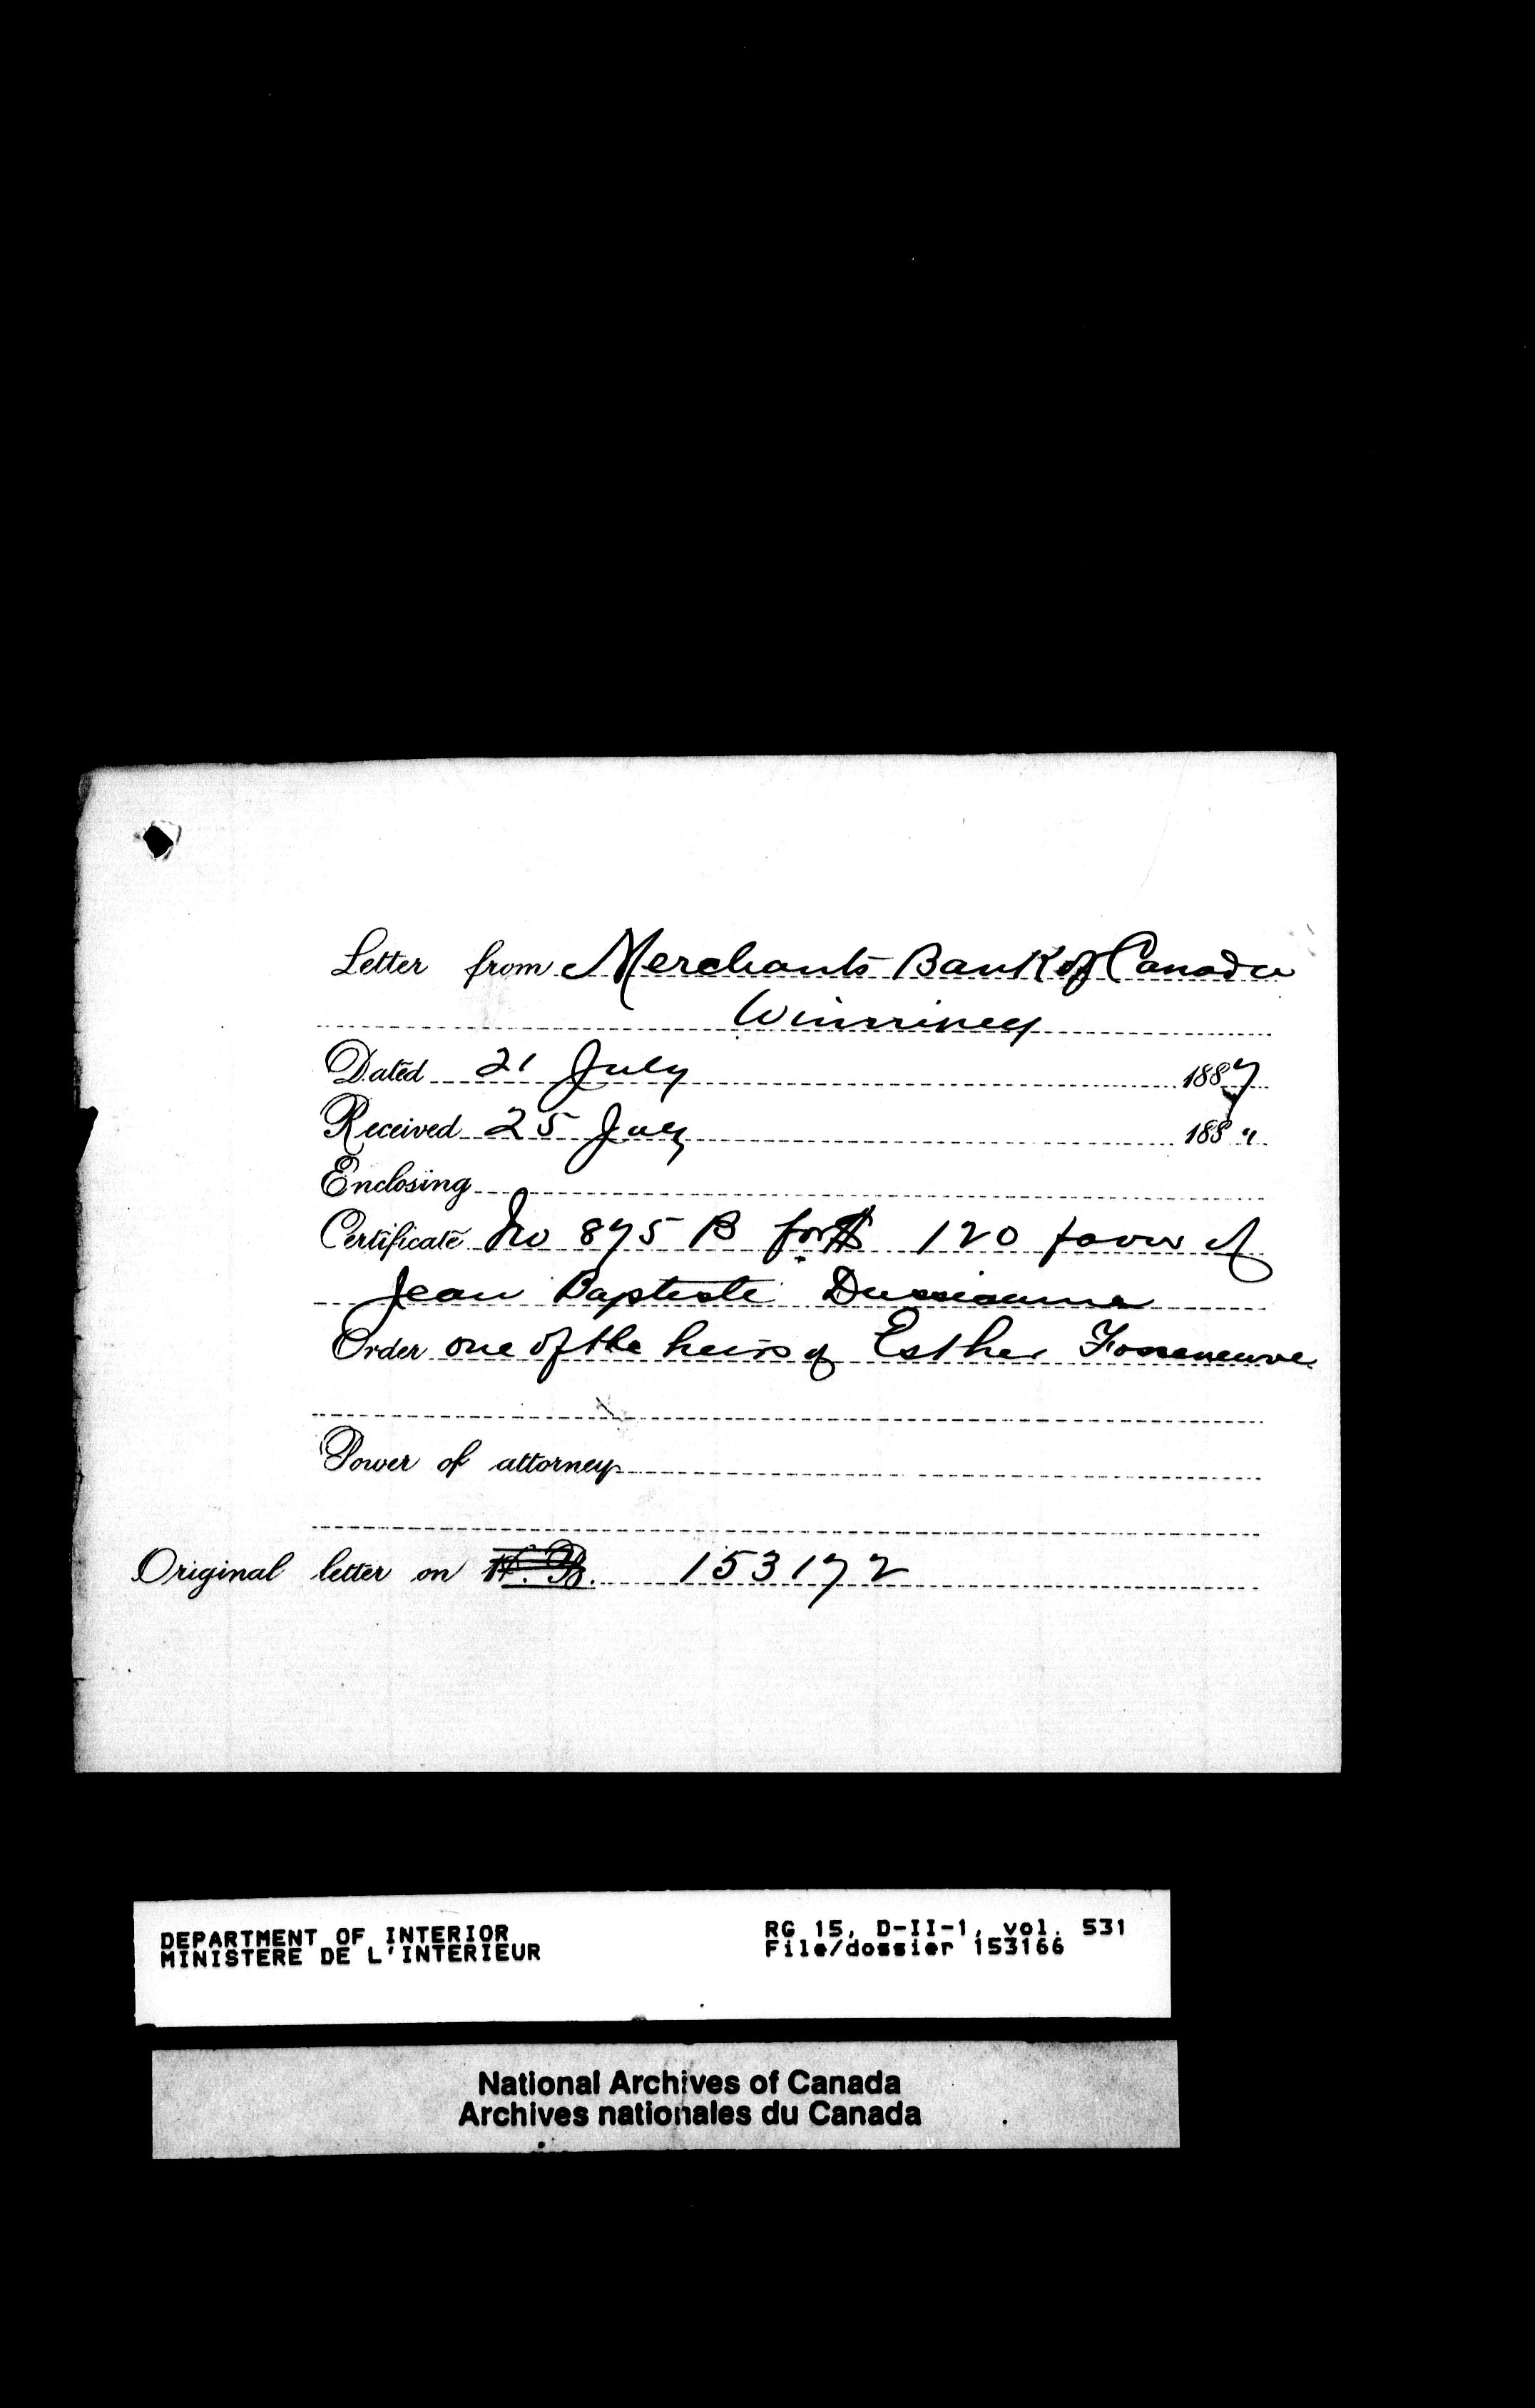 Letter from Merchants Bank of Canada
Winnipeg
Dated 21 July 1887
Received 25 July 188 "
Enclosing
Certificate No 875 B for $ 120 favor of
Jean Baptiste
Order one of the heirs of Esther
Power of attorney
Original letter on H.B. 153172
DEPARTMENT OF INTERIOR
MINISTERE DE L'INTERIEUR
RG 15, D-II-1, vol. 531
File/dossier 153166
National Archives of Canada
Archives nationales du Canada